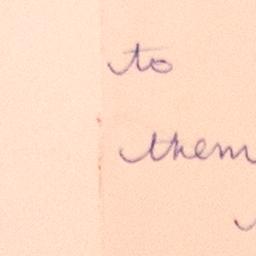 to
them